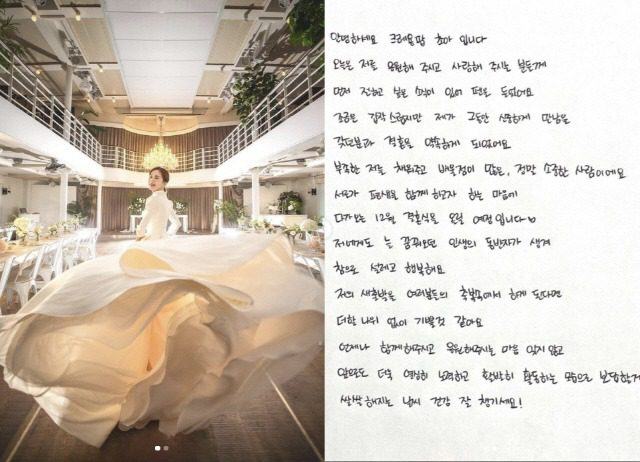 안녕하세요 크레용팝 초아 입니다
오늘은 저를 응원해 주시고 사랑해 주시는 분들께
먼저 전하고 싶은 소식이 있어 펜을 들었어요
조금은 갑작스럽지만 제가 그동안 신중하게 만남을
가졌던분과 결혼을 약속하게 되었어요
부족한 저를 채워주고 배울점이 많은, 정말 소중한 사람이에요
서로가 평생을 함께 하고자 하는 마음에
다가오는 12월 결혼식을 올릴 예정입니다♡
저에게도 늘 꿈꿔오던 인생의 동반자가 생겨
참으로 설레고 행복해요
저의 새출발을 여러분들의 축복속에서 하게 된다면
더할 나위 없이 기쁠것 같아요
언제나 함께해주시고 응원해주시는 마음 잊지 않고
앞으로도 더욱 열심히 노력하고 활발히 활동하는 모습으로 보답할게
쌀쌀해지는 날씨 건강 잘 챙기세요!